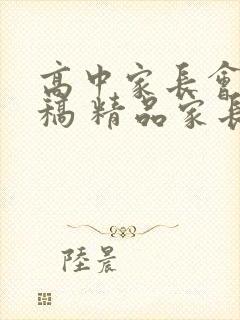 高中家长會
稿 精品家长
陸晨